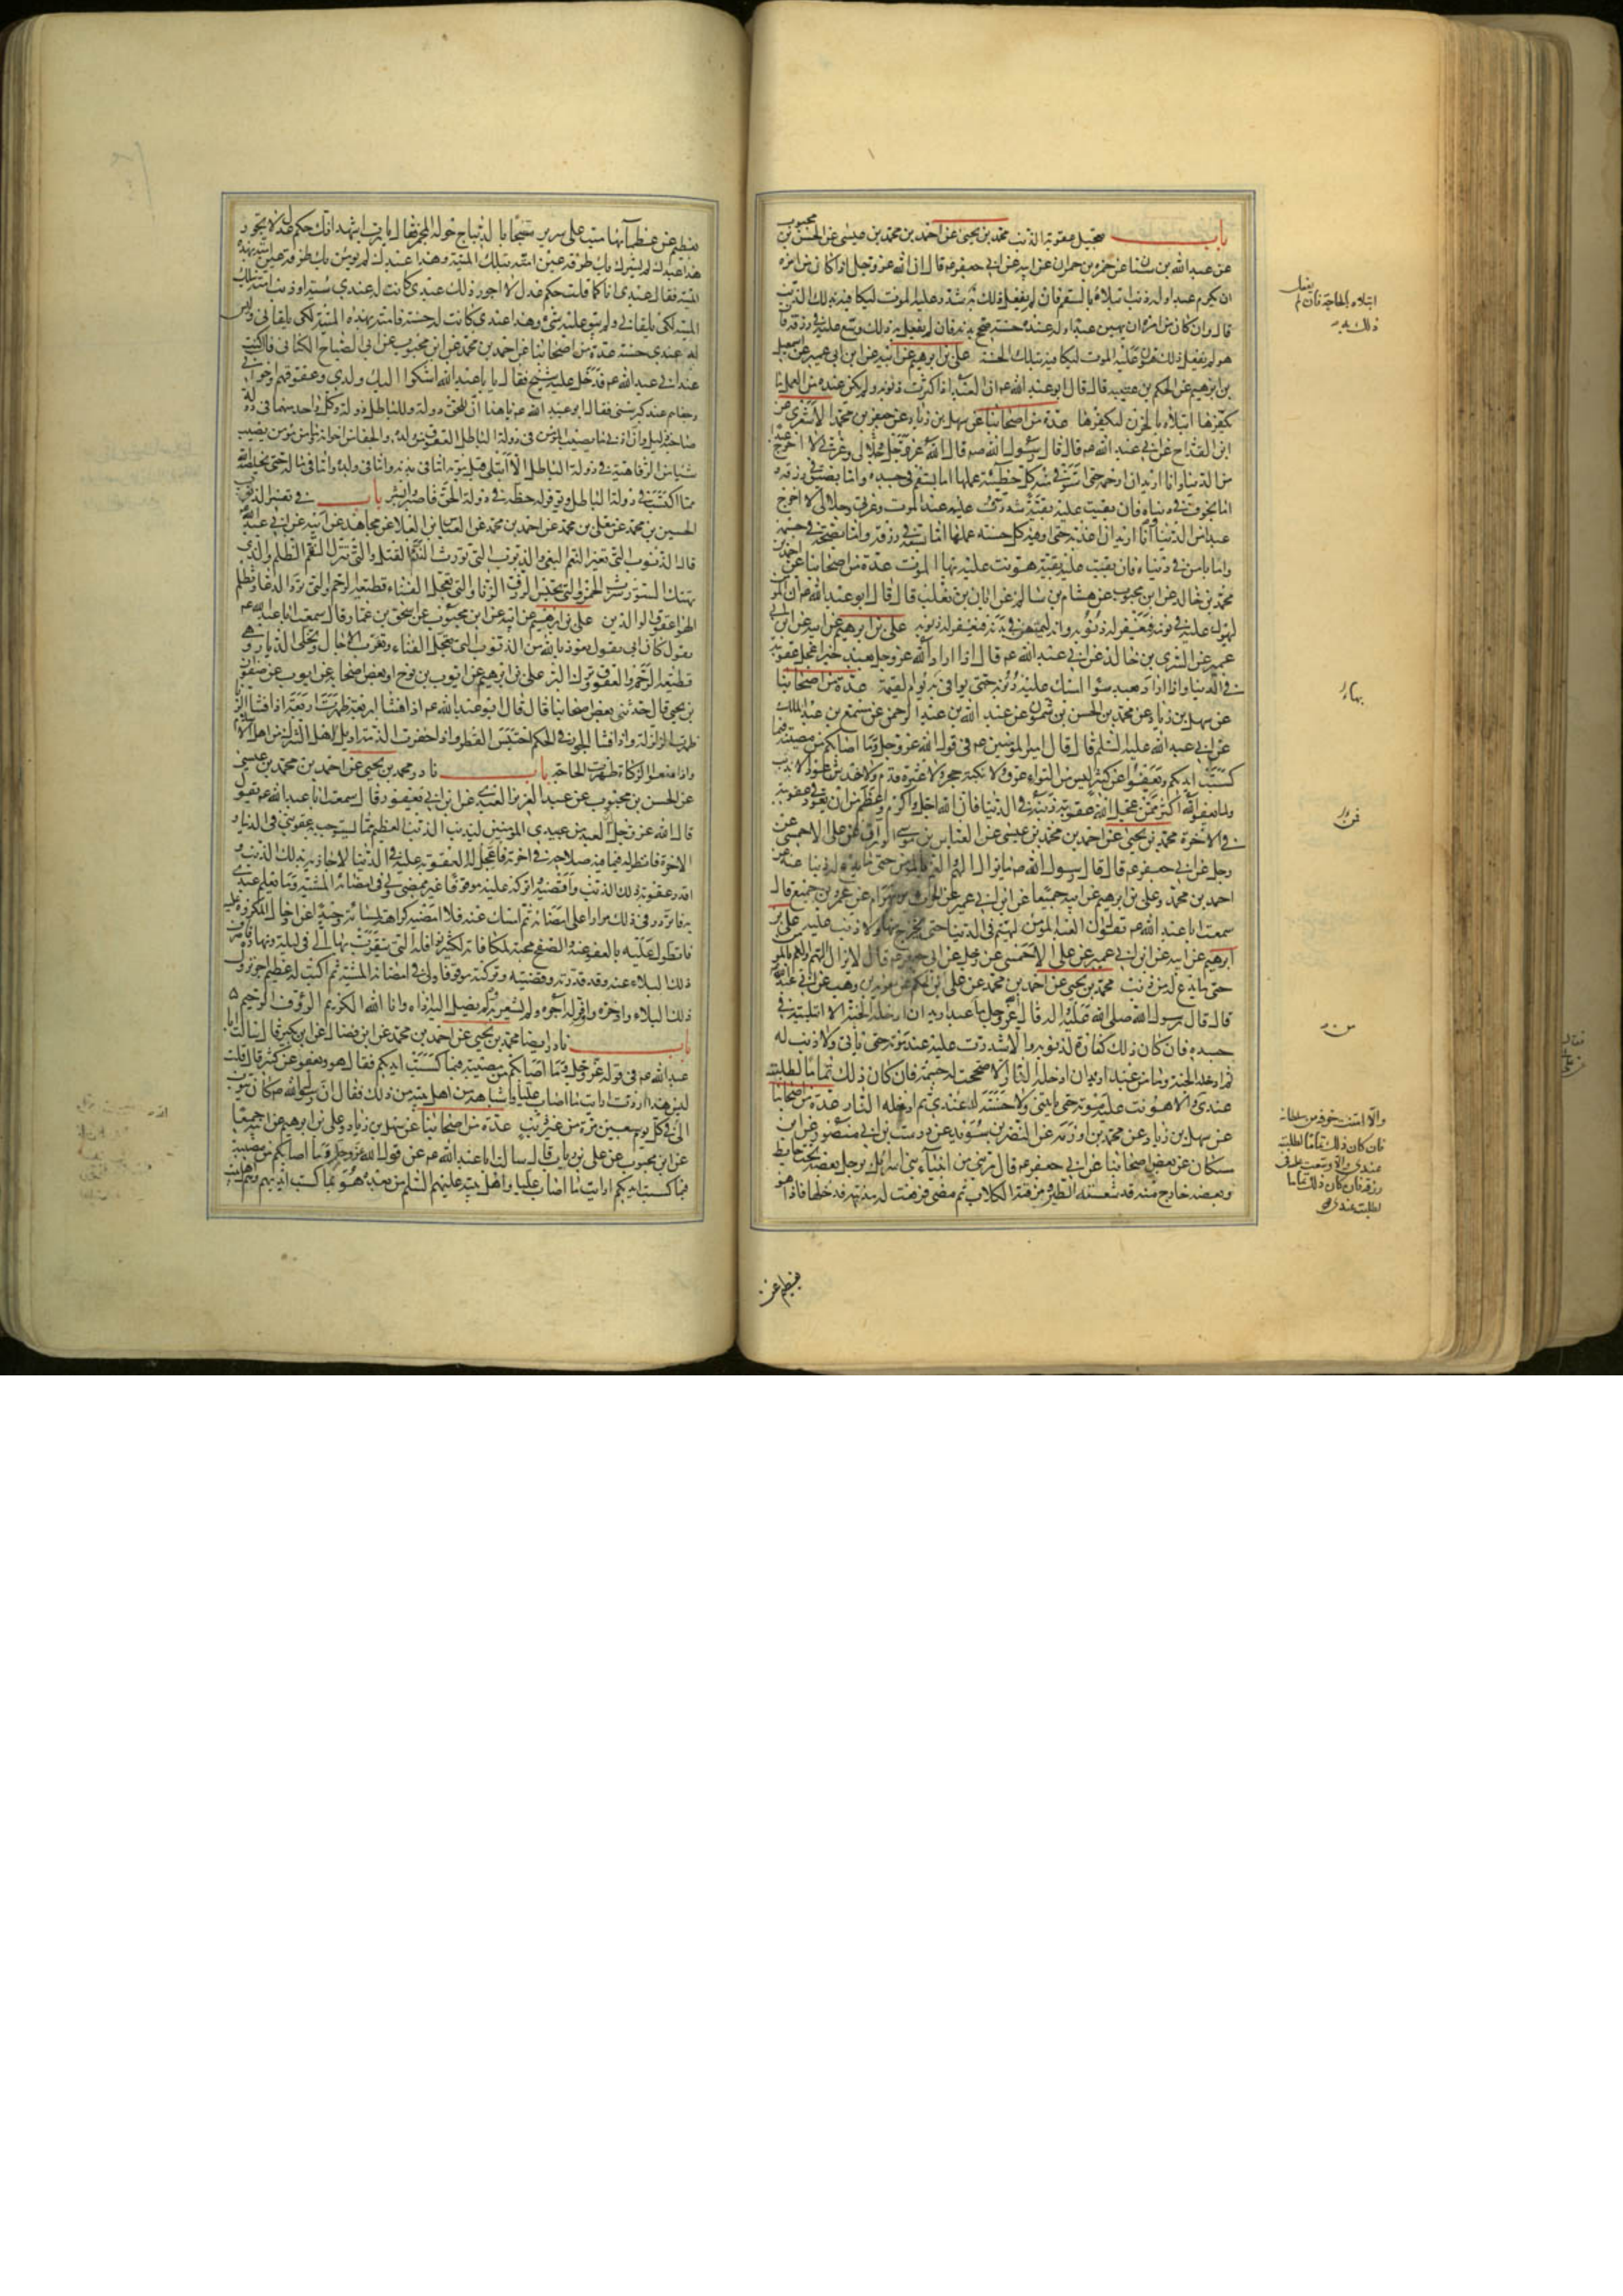 باب تعجيل عقوبة الذنب محمد بن يحيى عن احمد بن محمد بن عيسى عن الحسن بن محبوب
عن عبد الله بن سنان عن حمزة بن حمران عن ابيه عن ابي جعفر ع قال ان الله عز وجل اذا كان من امره
ان يكرم عبدا وله ذنب ابتلاه بالسقم فان لم يفعل ذلك به شدد عليه الموت ليكافيه بذلك الذنب
قال وان كان من امره ان يهين عبدا وله عنده حسنة صحح بدنه فان لم يفعل به ذلك وسع عليه في رزقه فان
هو لم يفعل ذلك به هون عليه الموت ليكافيه بتلك الحسنة علي بن ابرهيم عن ابيه عن ابن ابي عمير عن اسمعيل
بن ابرهيم عن الحكم بن عتيبة قال قال ابو عبد الله ع ان العبد اذا كثرت ذنوبه ولم يكن عنده من العمل ما
يكفرها ابتلاه بالحزن ليكفرها عدة من اصحابنا عن سهل بن زياد عن جعفر بن محمد الاشعري عن
ابن القداح عن ابي عبد الله ع قال قال رسول الله ص قال الله عز وجل وعزتي وجلالي لا اخرج عبدا
من الدنيا وانا اريد ان ارحمه حتى استوفي منه كل خطيئة عملها اما بسقم في جسده واما بضيق في رزقه و
اما بخوف في دنياه فان بقيت عليه بقية شددت عليه عند الموت وعزتي وجلالي لا اخرج
عبدا من الدنيا وانا اريد ان اعذبه حتى اوفيه كل حسنة عملها اما بسعة في رزقه واما بصحة في جسمه
واما بامن في دنياه فان بقيت عليه بقية هونت عليه بها الموت عدة من اصحابنا عن احمد بن
محمد بن خالد عن ابن محبوب عن هشام بن سالم عن ابان بن تغلب قال قال ابو عبد الله ع ان المؤمن
ليهول عليه في نومه فيغفر له ذنوبه وانه ليمتهن في بدنه فيغفر له ذنوبه علي بن ابرهيم عن ابيه عن ابن ابي
عمير عن السري بن خالد عن ابي عبد الله ع قال اذا اراد الله عز وجل بعبد خيرا عجل عقوبته
في الدنيا واذا اراد بعبد سوءا امسك عليه ذنوبه حتى يوافي به يوم القيمة عدة من اصحابنا
عن سهل بن زياد عن محمد بن الحسن بن شمون عن عبد الله بن عبد الرحمن عن مسمع بن عبد الملك
عن ابي عبد الله عليه السلم قال قال امير المؤمنين ع في قول الله عز وجل وما اصابكم من مصيبة فبما
كسبت ايديكم ويعفوا عن كثير ليس من التواء عرق ولا نكبة حجر ولا عثرة قدم ولا خدش عود الا بذنب
ولما يعفو الله اكثر فمن عجل الله عقوبة ذنبه في الدنيا فان الله اجل واكرم واعظم من ان يعود في عقوبته
في الاخرة محمد بن يحيى عن احمد بن محمد بن عيسى عن العباس بن موسى الوراق عن علي الاحمسي عن
رجل عن ابي جعفر ع قال قال رسول الله ص ما يزال الهم والغم بالمؤمن حتى ما يدع له ذنبا عنه عن
احمد بن محمد وعلي بن ابرهيم عن ابيه جميعا عن ابن ابي عمير عن الحرث بن بهرام عن عمرو بن جميع قال
سمعت ابا عبد الله ع يقول ان العبد المؤمن ليهتم في الدنيا حتى يخرج منها ولا ذنب عليه علي بن
ابرهيم عن ابيه عن ابن ابي عمير عن علي الاحمسي عن رجل عن ابي جعفر ع قال لا يزال الهم والغم بالمؤمن
حتى ما يدع له من ذنب محمد بن يحيى عن احمد بن محمد عن علي بن الحكم عن معوية بن وهب عن ابي عبد الله
قال قال رسول الله صلى الله عليه واله قال عز وجل ما عبد اريد ان ادخله الجنة الا ابتليته في
جسده فان كان ذلك كفارة لذنوبه والا شددت عليه عند موته حتى ياتي ولا ذنب له
ثم ادخله الجنة وما من عبد اريد ان ادخله النار الا صححت له جسمه فان كان ذلك تماما لطلبته
عندي والا هونت عليه موته حتى ياتيني ولا حسنة له عندي ثم ادخله النار عدة من اصحابنا
عن سهل بن زياد عن محمد بن اورمة عن النضر بن سويد عن درست بن ابي منصور عن ابن
مسكان عن بعض اصحابنا عن ابي جعفر ع قال مر نبي من انبياء بني اسرائيل برجل بعضه تحت حايط
وبعضه خارج منه قد شعثته الطير ومزقته الكلاب ثم مضى فرفعت له مدينة فدخلها فاذا هو
ابتلاه بالحاجة فان لم يفعل
ذلك به
بها
فمن
من
والا امنت خوفه من سلطانه
فان كان ذلك تماما لطلبته
عندي والا وسعت عليه في
رزقه فان كان ذلك تماما
لطلبته عندي
بعظيم من
بعظيم من عظمائها ميت على سرير مسجى بالديباج حوله المجمر فقال يا رب اشهد انك حكم عدل لا تجور
هذا عبدك لم يشرك بك طرفة عين امته بتلك الميتة وهذا عبدك لم يؤمن بك طرفة عين امته بهذه
الميتة فقال عبدي انا كما قلت حكم عدل لا اجور ذلك عبدي كانت له عندي سيئة او ذنب امته بتلك
الميتة لكي يلقاني ولم يبق عليه شيء وهذا عبدي كانت له حسنة فامته بهذه الميتة لكي يلقاني وليس
له عندي حسنة عدة من اصحابنا عن احمد بن محمد عن ابن محبوب عن ابي الصباح الكناني قال كنت
عند ابي عبد الله ع فدخل عليه شيخ فقال يا با عبد الله اشكوا اليك ولدي وعقوقهم واخواني
وجفاهم عند كبر سني فقال ابو عبد الله ع يا هذا ان للحق دولة وللباطل دولة وكل واحد منهما في دولة
صاحبه ذليل وان ادنى ما يصيب المؤمن في دولة الباطل العقوق من ولده والجفا من اخوانه وما من مؤمن يصيب
شيئا من الرفاهية في دولة الباطل الا ابتلي قبل موته اما في بدنه واما في ولده واما في ماله حتى يخلصه الله
مما اكتسب في دولة الباطل ويوفر له حظه في دولة الحق فاصبر وابشر باب في تفسير الذنوب
الحسين بن محمد عن معلى بن محمد عن احمد بن محمد عن العباس بن العلا عن مجاهد عن ابيه عن ابي عبد الله
قال الذنوب التي تغير النعم البغي والذنوب التي تورث الندم القتل والتي تنزل النقم الظلم والتي
تهتك الستور شرب الخمر والتي تحبس الرزق الزنا والتي تعجل الفناء قطيعة الرحم والتي ترد الدعا وتظلم
الهواء عقوق الوالدين علي بن ابرهيم عن ابيه عن ابن محبوب عن اسحق بن عمار قال سمعت ابا عبد الله ع
يقول كان ابي يقول نعوذ بالله من الذنوب التي تعجل الفناء وتقرب الاجال وتخلي الديار وهي
قطيعة الرحم والعقوق وترك البر علي بن ابرهيم عن ايوب بن نوح او بعض اصحابه عن ايوب عن صفوان
بن يحيى قال حدثني بعض اصحابنا قال قال ابو عبد الله ع اذا فشا اربعة ظهرت اربعة اذا فشا الزنا
ظهرت الزلزلة واذا فشا الجور في الحكم احتبس القطر واذا خفرت الذمة اديل لاهل الشرك من اهل الاسلام
واذا منعوا الزكاة ظهرت الحاجة باب نادر محمد بن يحيى عن احمد بن محمد بن عيسى
عن الحسن بن محبوب عن عبد العزيز العبدي عن ابن ابي يعفور قال سمعت ابا عبد الله ع يقول
قال الله عز وجل ان العبد من عبيدي المؤمنين ليذنب الذنب العظيم مما يستوجب به عقوبتي في الدنيا و
الاخرة فانظر له فيما فيه صلاحه في اخرته فاعجل له العقوبة عليه في الدنيا لاجازيه بذلك الذنب و
اقدر عقوبة ذلك الذنب واقضيه واتركه عليه موقوفا غير ممضى ولي في امضائه المشية وما يعلم عبدي
به فاتردد في ذلك مرارا على امضائه ثم امسك عنه فلا امضيه كراهة لمساءته وحيدا عن ادخال المكروه عليه
فاتطول عليه بالعفو عنه والصفح محبة لمكافاته لكثير نوافله التي يتقرب بها الي في ليله ونهاره فاصرف
ذلك البلاء عنه وقد قدرته وقضيته وتركته موقوفا ولي في امضائه المشية ثم اكتب له عظيم اجر نزول
ذلك البلاء وادخره واوفر له اجره ولم يشعر به ولم يصل اليه اذاه وانا الله الكريم الرؤف الرحيم
باب نادر ايضا محمد بن يحيى عن احمد بن محمد عن ابن فضال عن ابن بكير قال سالت ابا
عبد الله ع في قوله عز وجل وما اصابكم من مصيبة فبما كسبت ايديكم فقال هو ويعفو عن كثير قال قلت
ليس هذا اردت ارايت ما اصاب عليا واشباهه من اهل بيته من ذلك فقال ان رسول الله ص كان يتوب
الى الله في كل يوم سبعين مرة من غير ذنب عدة من اصحابنا عن سهل بن زياد وعلي بن ابرهيم عن ابيه جميعا
عن ابن محبوب عن علي بن رئاب قال سالت ابا عبد الله ع عن قول الله عز وجل وما اصابكم من مصيبة
فبما كسبت ايديكم ارايت ما اصاب عليا واهل بيته عليهم السلم من بعده هو بما كسبت ايديهم وهم اهل بيت